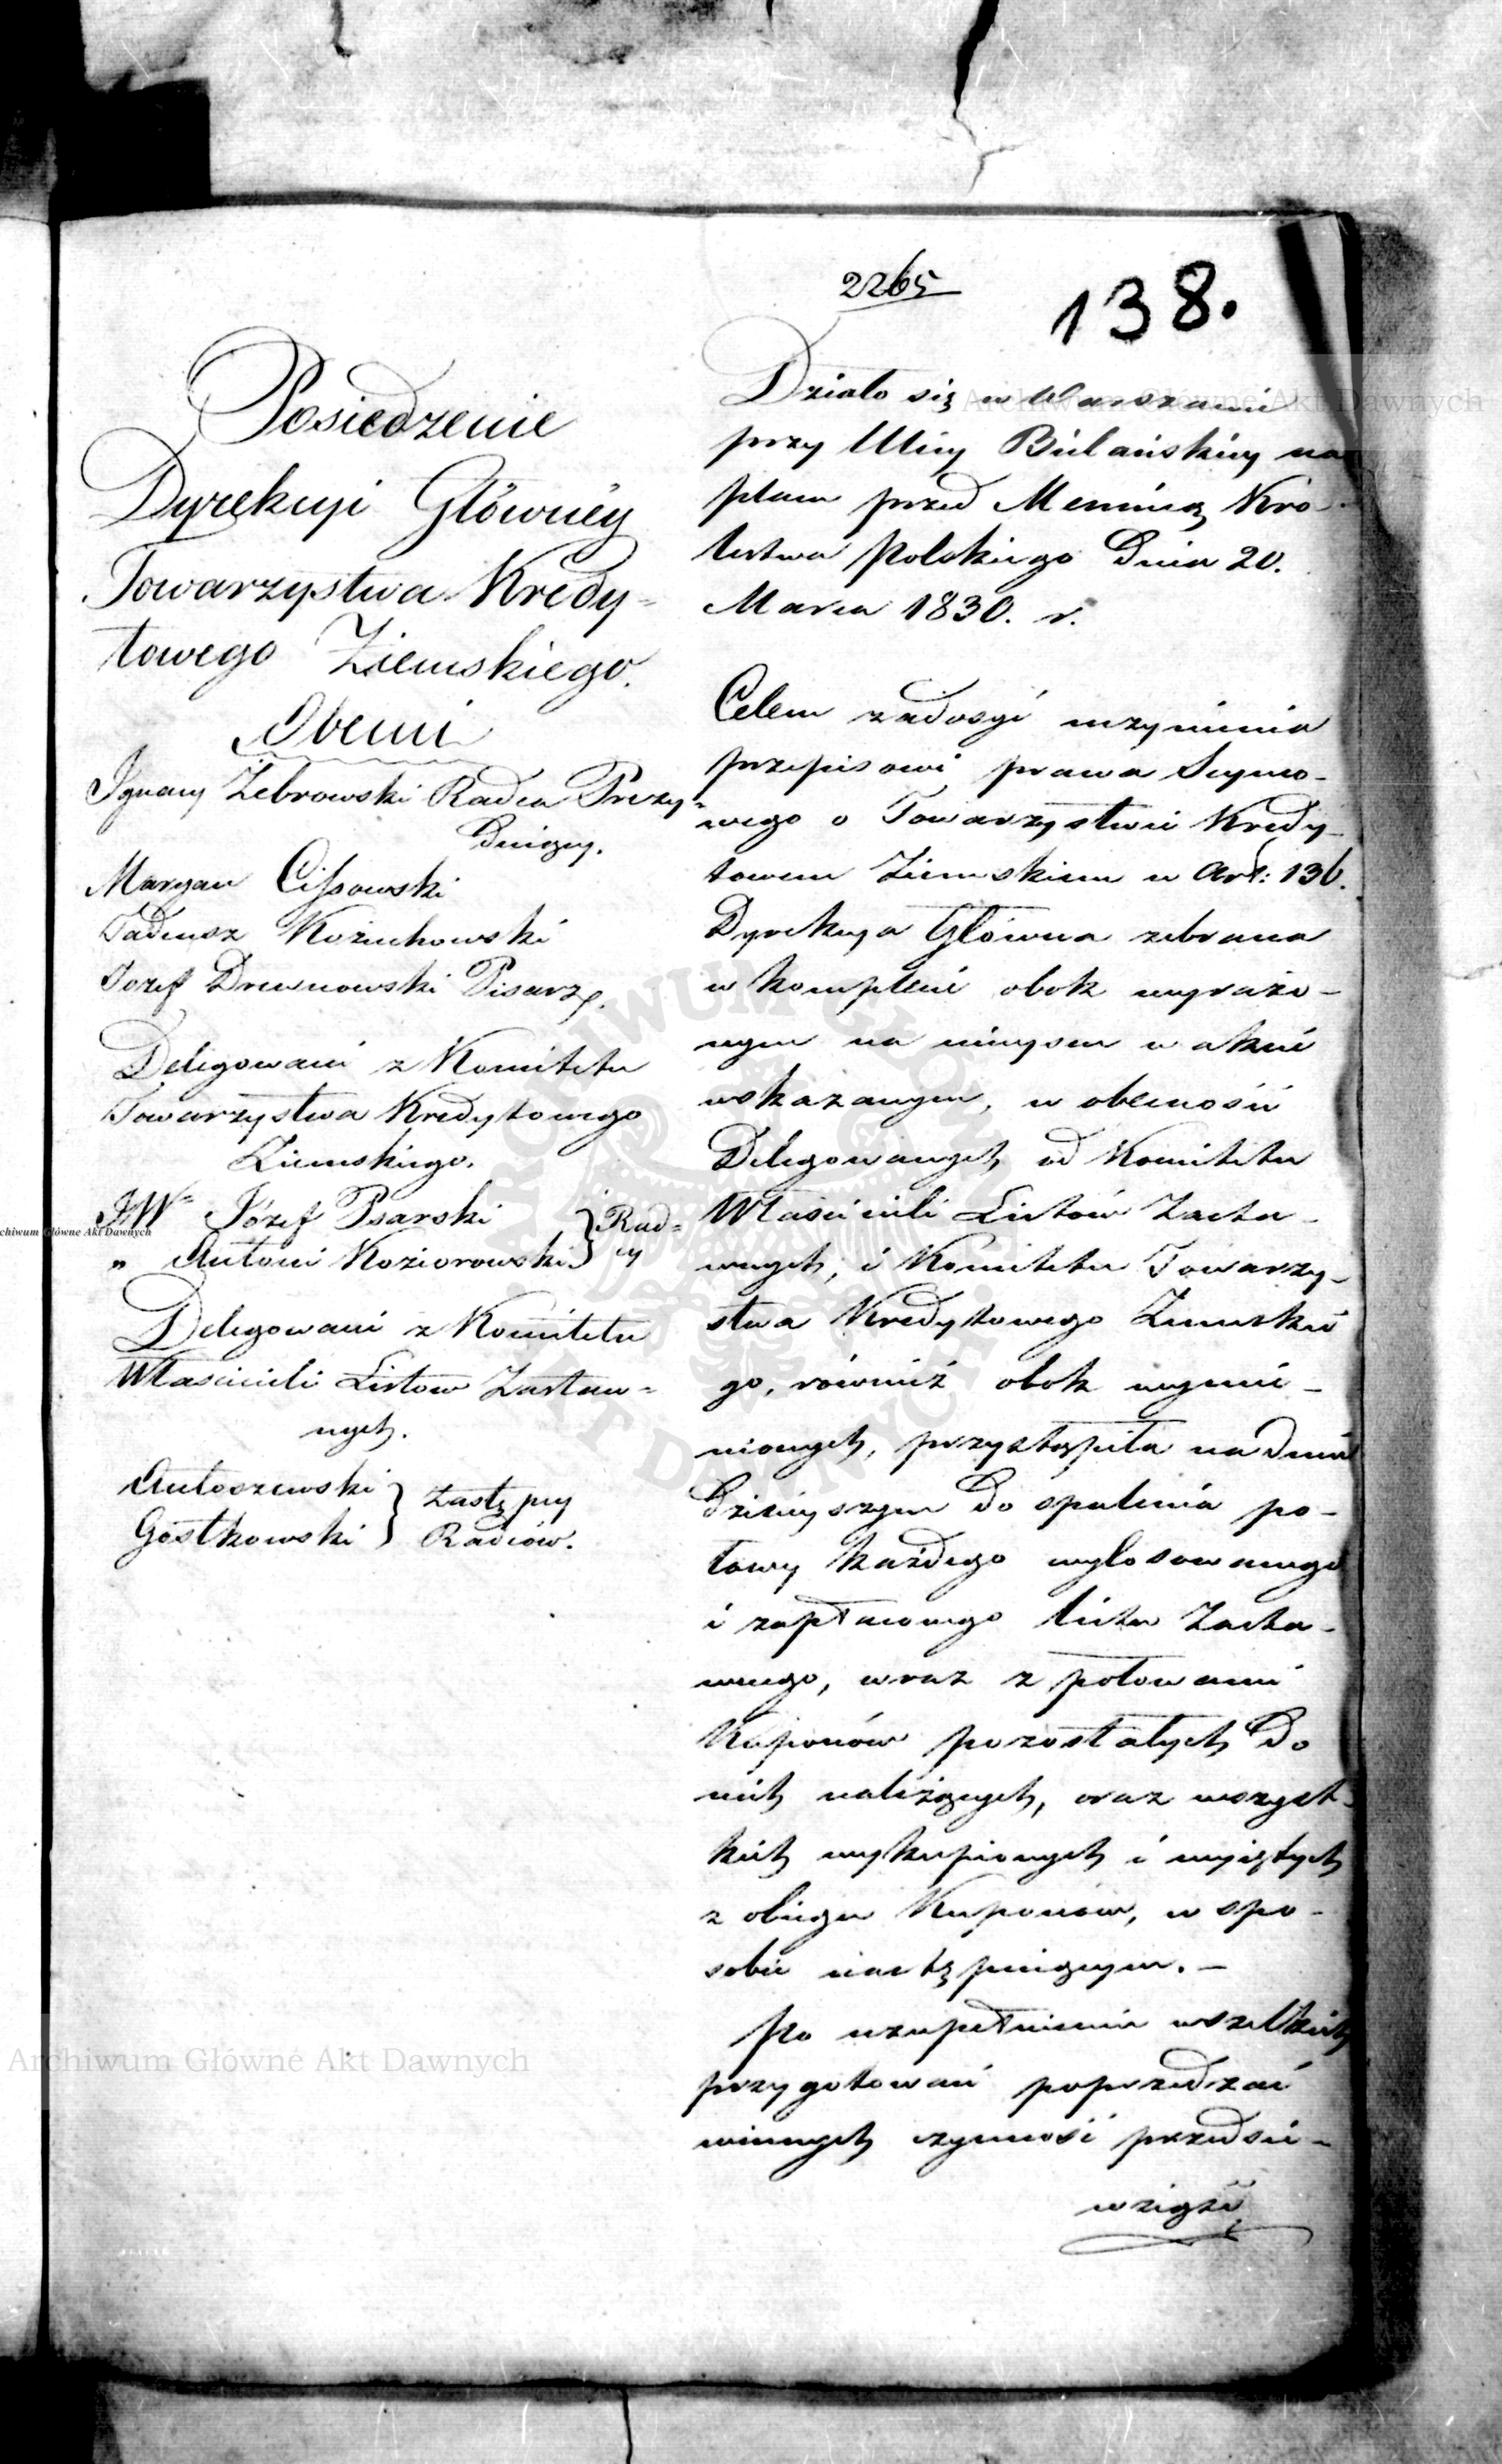 2265
138.
Posiedzenie
Dyrekcyi Główney
Towarzystwa Kredy-
towego Ziemskiego.
Obecni
Ignacy Zebrowski Radca Prezy-
duiący.
Maryan Cissowski
Tadeusz Kożuchowski
Jozef Drewnowski Pisarz.
Delegowani z Komitetu
Towarzystwa Kredytowego
Ziemskiego.
JW. Józef Psarski } Rad-
" Antoni Koziorowski } cy
Delegowani z Komitetu
Właścicieli Listow Zastaw-
nych.
Antoszewski } Zastępcy
Gostkowski } Radców.
Działo się w Warszawie
przy Ulicy Bielańskiey na
placu przed Mennicą Kró-
lestwa Polskiego Dnia 20.
Marca 1830. r.
Celem zadosyć uczynienia
przepisowi prawa Seymo-
wego o Towarzystwie Kredy-
towem Ziemskiem w Art: 136.
Dyrekcya Główna zebrana
w komplecie obok wyrażo-
nym na mieyscu w akcie
wskazanym, w obecności
Delegowanych od Komitetu
Właścicieli Listów Zasta-
wnych, i Komitetu Towarzy-
stwa Kredytowego Ziemskie
go, również obok wymie-
nionych, przystąpiła na dniu
dzisieyszym do spalenia po-
łowy każdego wylosowanego
i zapłaconego listu Zasta-
wnego, wraz z połowami
Kuponów pozostałych do
nich należących, oraz wszyst-
kich wykupionych i wyiętych
z obiegu Kuponów, w spo-
sobie następuiącym. -
Po uzupełnieniu wszelkich
przygotowań poprzedzać
winnych czynność przedsie-
wziąść
Archiwum Główne Akt Dawnych
Archiwum Główne Akt Dawnych
Archiwum Główne Akt Dawnych
ARCHIWUM GŁÓWNE AKT DAWNYCH